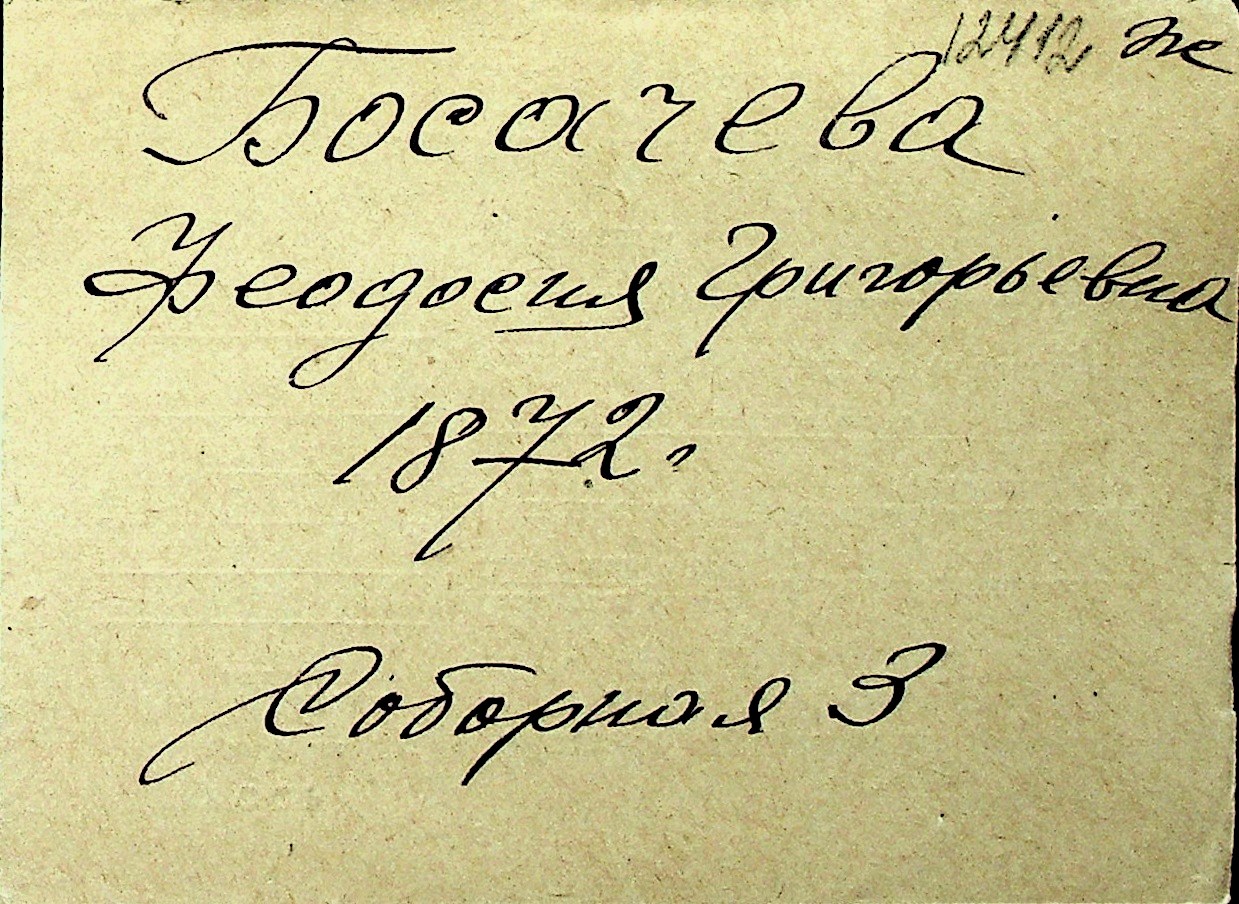 12412 ж
Босачева
Феодосия Григорьевна
1872 г
Соборная 3